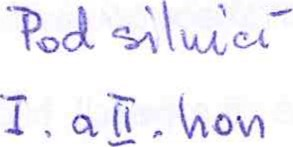 Pod silnicí
I. a II. hon